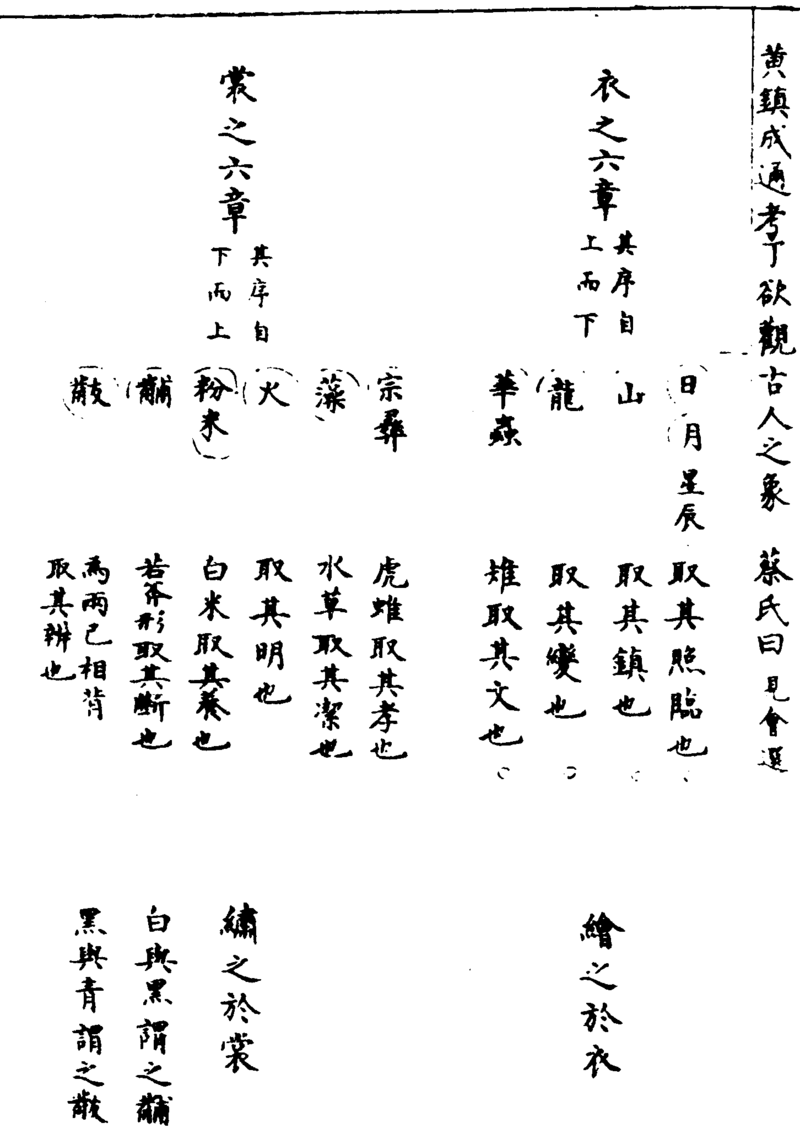 黄鎮成通考丁欲觀古人之象　蔡氏曰　見會選
衣之六章
其序自
上而下
日月星辰　取其照臨也
山　取其鎮也
龍　取其變也
華蟲　雉取其文也
繪之於衣
裳之六章
其序自
下而上
宗彝　虎蜼取其孝也
藻　水草取其潔也
火　取其明也
粉米　白米取其養也
黼　若斧形取其斷也
黻　為兩己相背
取其辨也
繡之於裳
白與黑謂之黼
黑與青謂之黻